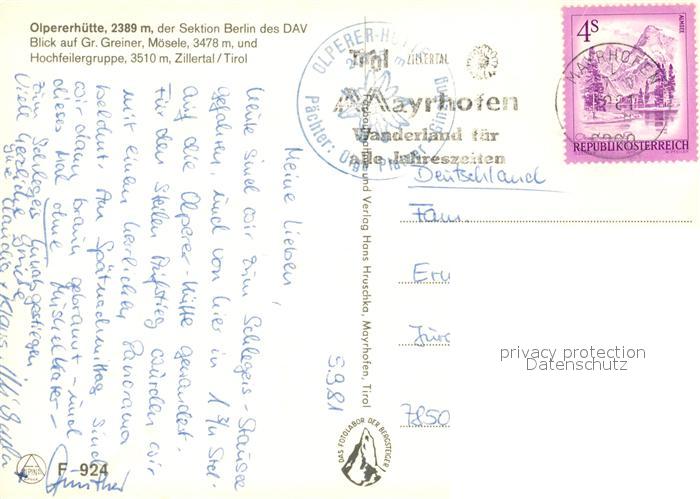 Olpererhütte, 2389 m, der Sektion Berlin des DAV
Blick auf Gr. Greiner, Mösele, 3478 m, und
Hochfeilergruppe, 3510 m, Zillertal/Tirol
OLPERER-HÜTTE
Pächter:
Tirol ZILLERTAL
Mayrhofen
Wanderland für
alle Jahreszeiten
MAYRHOFEN
4S
ALMSEE
REPUBLIK ÖSTERREICH
5.9.81
Meine Lieben,
heute sind wir zum Schlegeis-Stausee
gefahren, und von hier in 1 3/4 Std.
auf die Olperer-Hütte gewandert.
Für den steilen Aufstieg wurden wir
mit einem herrlichen Panorama
belohnt. Am Spätnachmittag sind
wir dann braun gebrannt - und
dieses Mal ohne Muskelkater -
zum Schlegeis hinabgestiegen
Viele herzliche Grüße
Claudia, Klaus,
+ Günther
Verlag Hans Hruschka, Mayrhofen, Tirol
Deutschland
Fam.
Jürg
7850
privacy protection
Datenschutz
DAS FOTOLABOR DER BERGSTEIGER
ALPINA
F-924